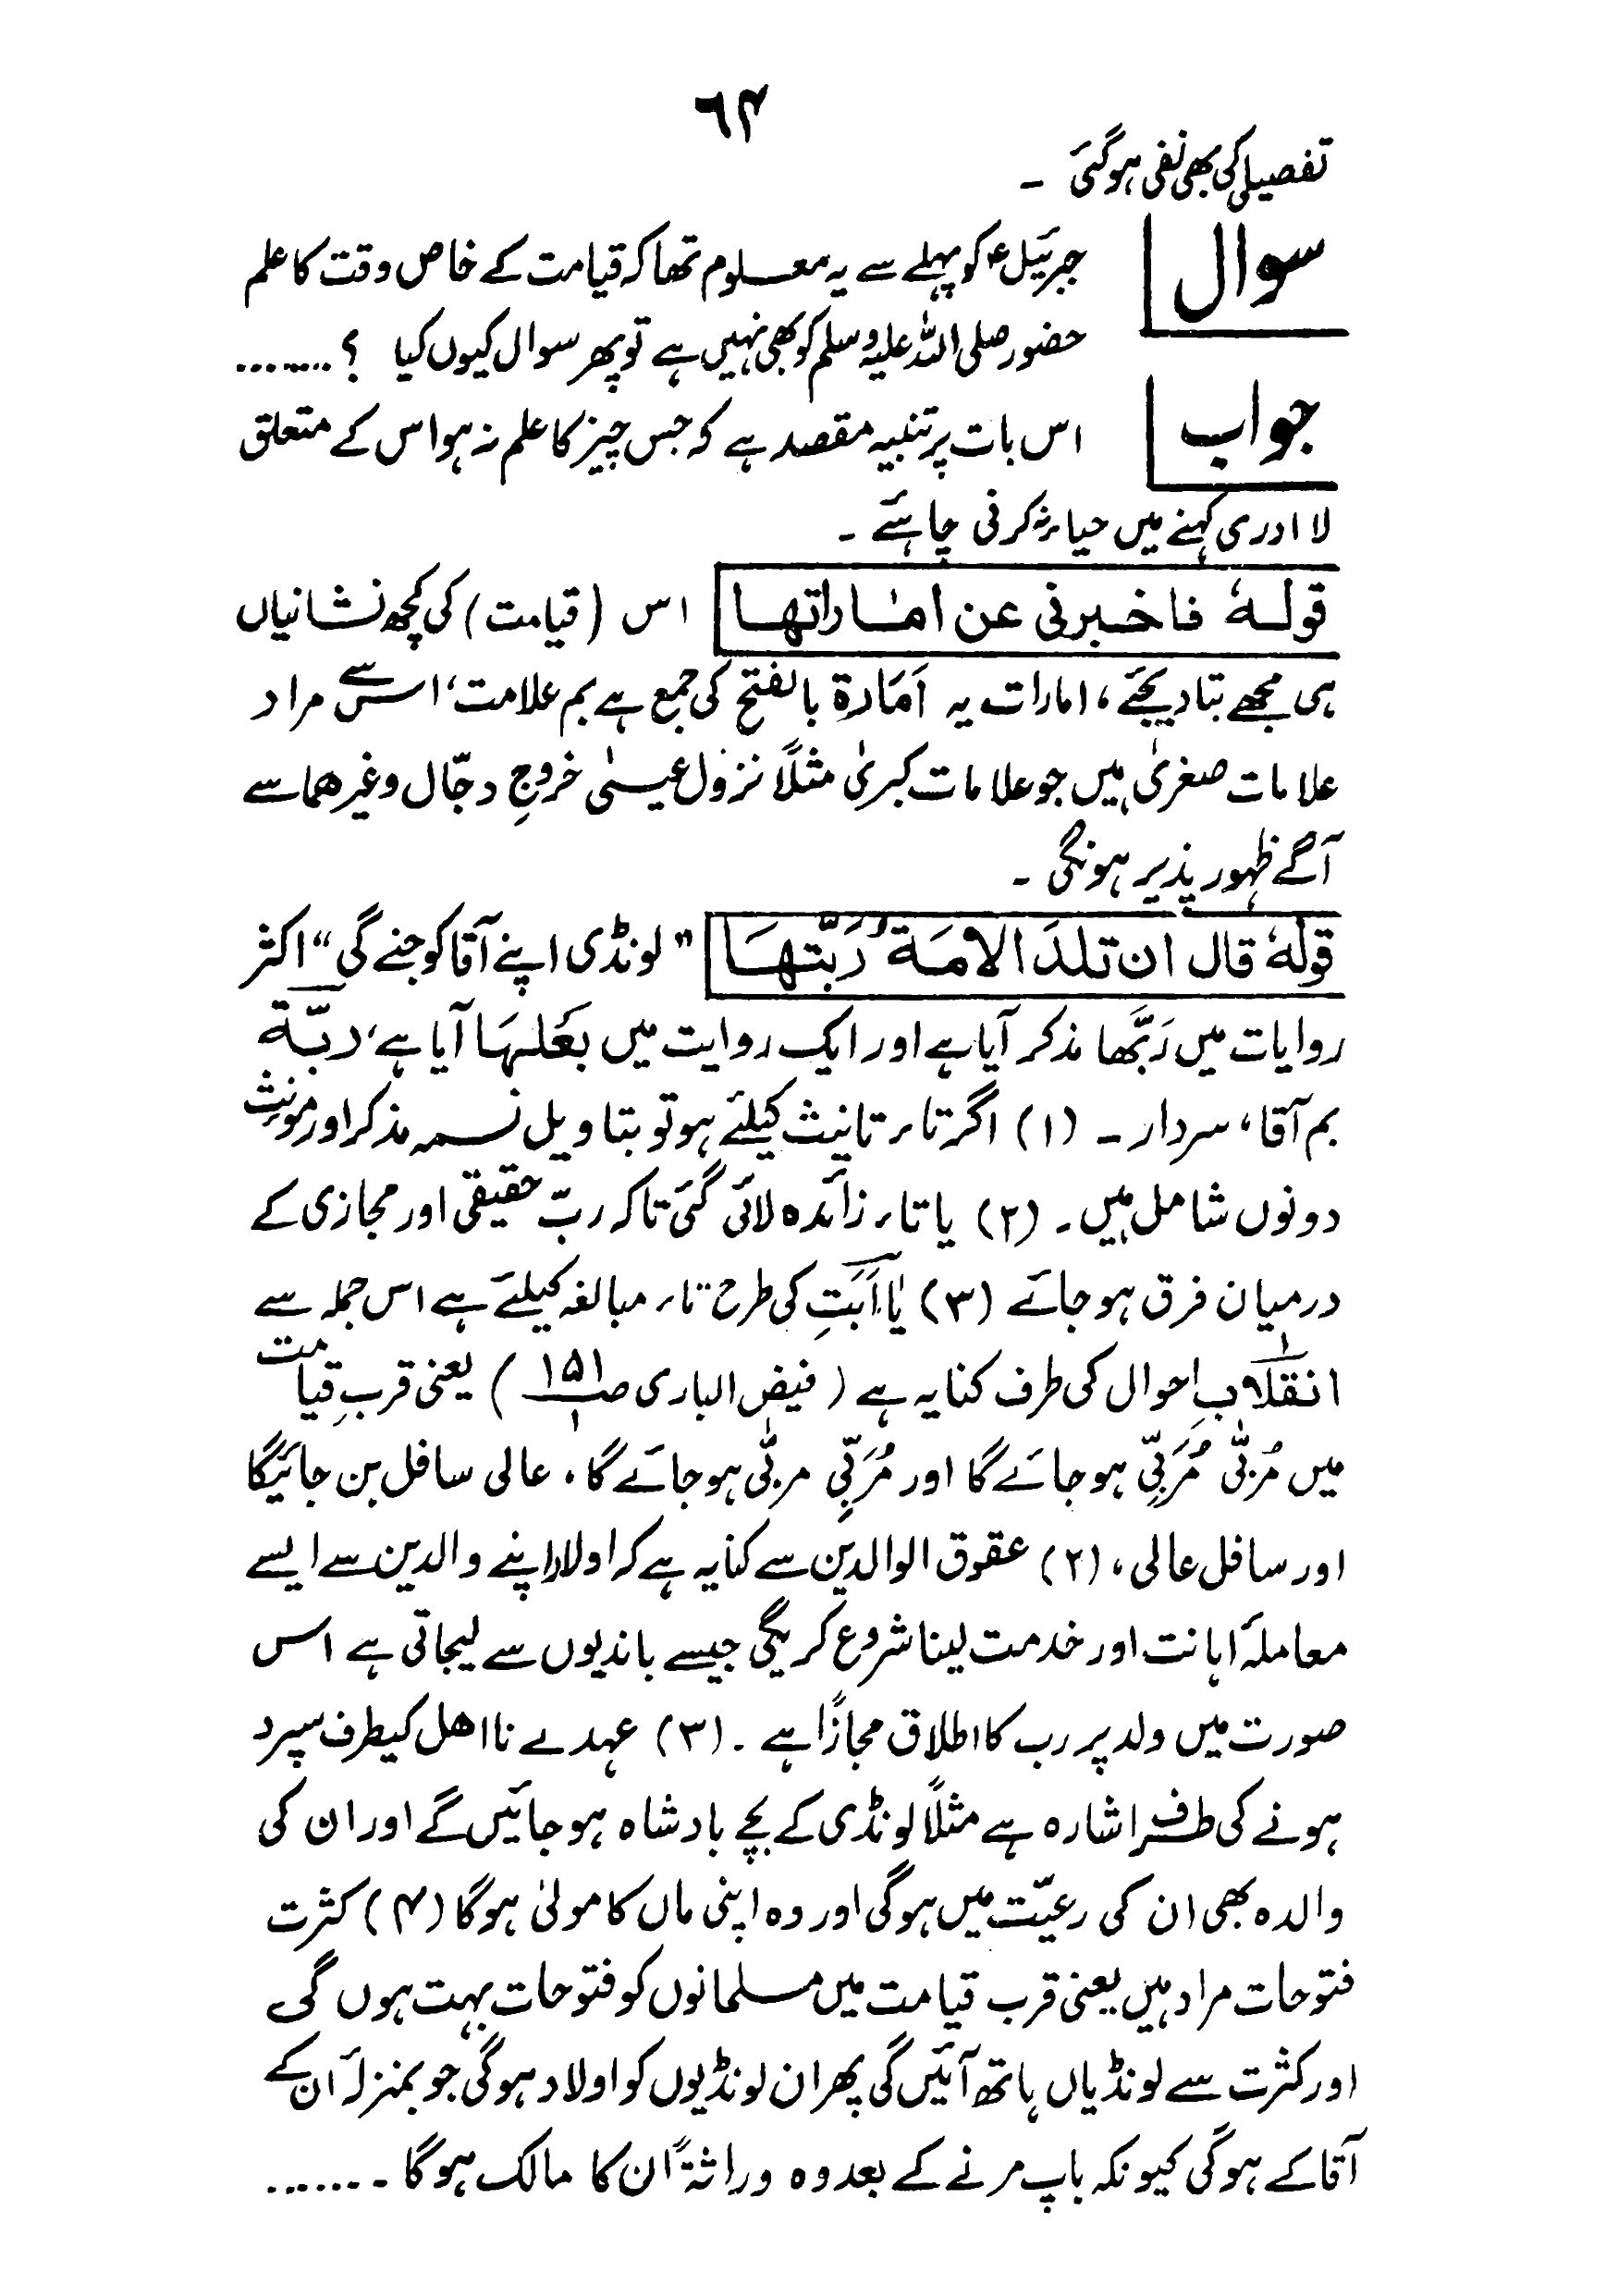 ٦۴
تفصیلی کی بھی نفی ہوگئی ۔
سوال جبرئیل ؑ کو پہلے سے یہ معلوم تھا کہ قیامت کے خاص وقت کا علم
حضور صلی اللہ علیہ وسلم کو بھی نہیں ہے تو پھر سوال کیوں کیا ؟ ........
جواب اس بات پر تنبیہ مقصد ہے کہ جس چیز کا علم نہ ہو اس کے متعلق
لا ادری کہنے میں حیاء نہ کرنی چاہئے ۔
قولہٗ فاخبرنی عن اماراتھا اس (قیامت) کی کچھ نشانیاں
ہی مجھے بتا دیجئے ، امارات یہ اَمَارة بالفتح کی جمع ہے بم علامت، اس سے مراد
علامات صغریٰ ہیں جو علامات کبریٰ مثلاً نزول عیسیٰ خروجِ دجّال وغیرھما سے
آگے ظہور پذیر ہونگی ۔
قولہٗ قال ان تلدَ الامَةُ رَبَّتھَا " لونڈی اپنے آقا کو جنے گی " اکثر
روایات میں رَبَّھا مذکر آیا ہے اور ایک روایت میں بَعْلَہَا آیا ہے، ربّة
بم آقا ، سردار ۔ (۱) اگر تاء تانیث کیلئے ہو تو بتاویل نسمہ مذکر اور مؤنث
دونوں شامل ہیں ۔ (۲) یا تاء زائدہ لائی گئی تاکہ ربّ حقیقی اور مجازی کے
درمیان فرق ہو جائے (۳) یا اَبَتِ کی طرح تاء مبالغہ کیلئے ہے اس جملہ سے
۱ انقلابِ احوال کی طرف کنایہ ہے ( فیض الباری صـ ۱۵۱/۱ ) یعنی قربِ قیامت
میں مُربّٰی مُرَبِّی ہو جائے گا اور مُرَبِّی مربّٰی ہو جائے گا ، عالی سافل بن جائیگا
اور سافل عالی ، (۲) عقوق الوالدین سے کنایہ ہے کہ اولاد اپنے والدین سے ایسے
معاملہٴ اہانت اور خدمت لینا شروع کریگی جیسے باندیوں سے لیجاتی ہے اس
صورت میں ولد پر رب کا اطلاق مجازاً ہے ۔ (۳) عہدے نا اھل کیطرف سپرد
ہونے کی طرف اشارہ ہے مثلاً لونڈی کے بچے بادشاہ ہو جائیں گے اور ان کی
والدہ بھی ان کی رعیّت میں ہوگی اور وہ اپنی ماں کا مولیٰ ہوگا (۴) کثرت
فتوحات مراد ہیں یعنی قرب قیامت میں مسلمانوں کو فتوحات بہت ہوں گی
اور کثرت سے لونڈیاں ہاتھ آئیں گی پھر ان لونڈیوں کو اولاد ہوگی جو بمنزلہٴ ان کے
آقا کے ہوگی کیونکہ باپ مرنے کے بعد وہ وراثةً ان کا مالک ہوگا ۔ .......